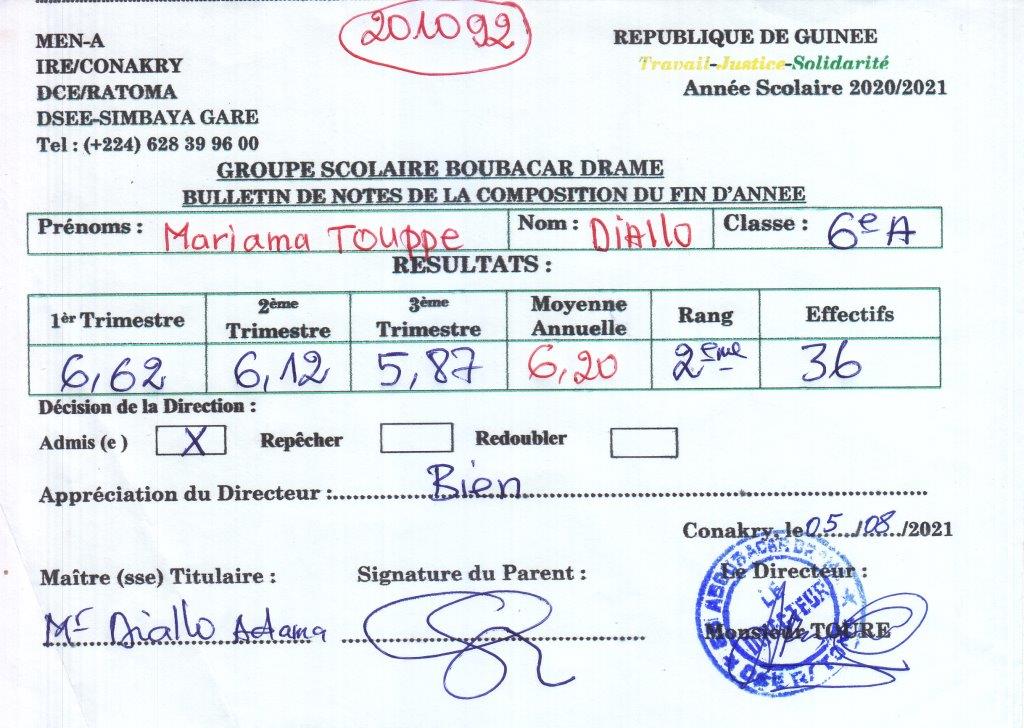 201092
MEN-A
IRE/CONAKRY
DCE/RATOMA
DSEE-SIMBAYA GARE
Tel : (+224) 628 39 96 00
REPUBLIQUE DE GUINEE
Travail-Justice-Solidarité
Année Scolaire 2020/2021
GROUPE SCOLAIRE BOUBACAR DRAME
BULLETIN DE NOTES DE LA COMPOSITION DU FIN D'ANNEE
Prénoms : Mariama Touppe Nom : Diallo Classe : 6e A
RESULTATS :
1èr Trimestre 2ème Trimestre 3ème Trimestre Moyenne Annuelle Rang Effectifs
6,62 6,12 5,87 6,20 2ème 36
Décision de la Direction :
Admis (e ) X Repêcher Redoubler
Appréciation du Directeur :.....Bien.....
Conakry, le 05/08/2021
Maître (sse) Titulaire : Signature du Parent : Le Directeur :
Mr Diallo Adama Monsieur TOURE
LE DIRECTEUR